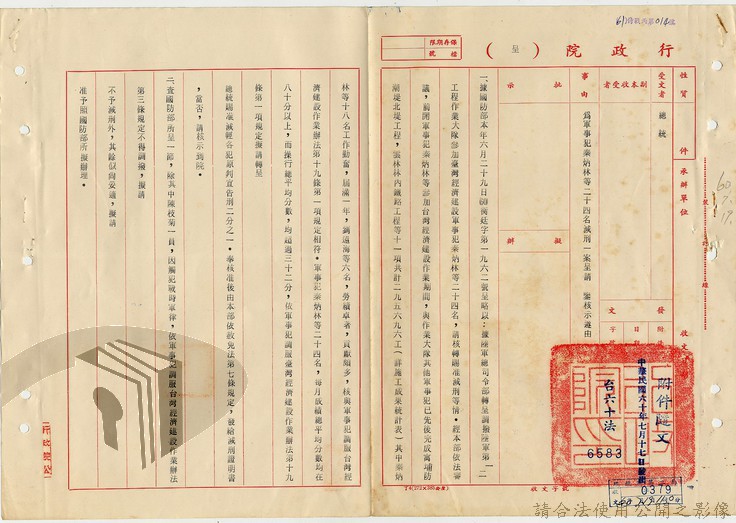 行政院（呈）
保存期限
檔號
性質
件
受文者
總統
副本收受者
事由
為軍事犯秦炳林等二十四名減刑一案呈請　鑒核示遵由
批示
擬辦
承辦單位
發文
一、據國防部本年六月二十九日(60)衡廷字第一九六二號呈略以：據陸軍總司令部轉呈調撥陸軍第一二
工程作業大隊參加臺灣經濟建設軍事犯秦炳林等二十四名，請核轉賜准減刑等情。經本部依法審
議，前開軍事犯秦炳林等參加台灣經濟建設作業期間，與作業大隊其他軍事犯已先後完成高埔防
潮堤北堤工程，雲林林內鐵路工程等十一項共計二九五六九六工（詳施工成果統計表）其中秦炳
林等十八名工作勤奮，屆滿一年，鍾遠海等六名，勞績卓著，貢獻頗多，核與軍事犯調服台灣經
濟建設作業辦法第十九條第一項規定相符。軍事犯秦炳林等二十四名，每月成績總平均分數均在
八十分以上，而操行總平均分數，均超過三十二分，依軍事犯調服臺灣經濟建設作業辦法第十九
條第一項規定擬請轉呈
總統賜准減經各犯原判宣告刑二分之一。奉核准後由本部依赦免法第七條規定，發給減刑證明書
，當否，請核示到院。
二、查國防部所呈一節，除其中陳枝菊一員，因觸犯戰時軍律，依軍事犯調服台灣經濟建設作業辦法
第三條規定不得調撥，擬請
不予減刑外，其餘似尚妥適，擬請
准予照國防部所擬辦理。
附件隨文
中華民國六十年七月十七日發出
台六十法
6583
0379
收文字號
60.
7.
19.
請合法使用公開之影像